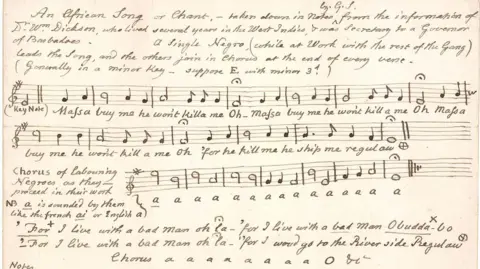 By G.S.
An African Song or Chant, – taken down in Notes, from the information of
Dr. Wm. Dickson, who lived several years in the West Indies, & was Secretary to a Governor
of Barbadoes. A Single Negro (while at Work with the rest of the Gang)
leads the Song, and the others join in Chorus at the end of every verse.
(Generally in a minor Key – suppose E with minor 3d.)
(Key Note) Massa buy me he won't killa me Oh – Massa buy me he won't killa me Oh Massa
buy me he won't kill a me Oh 'for he kill me he ship me regulaw
Chorus of Labouring
Negroes as they –
proceed in their work
a a a a a a a a a
NB a is sounded by them
like the french ai or English a)
"For+ I live with a bad man oh la – 'for I live with a bad man Obudda-bo
"For I live with a bad man oh la – 'for I woud go to the River side Regulaw
Chorus a a a a a a a O &c
Notes